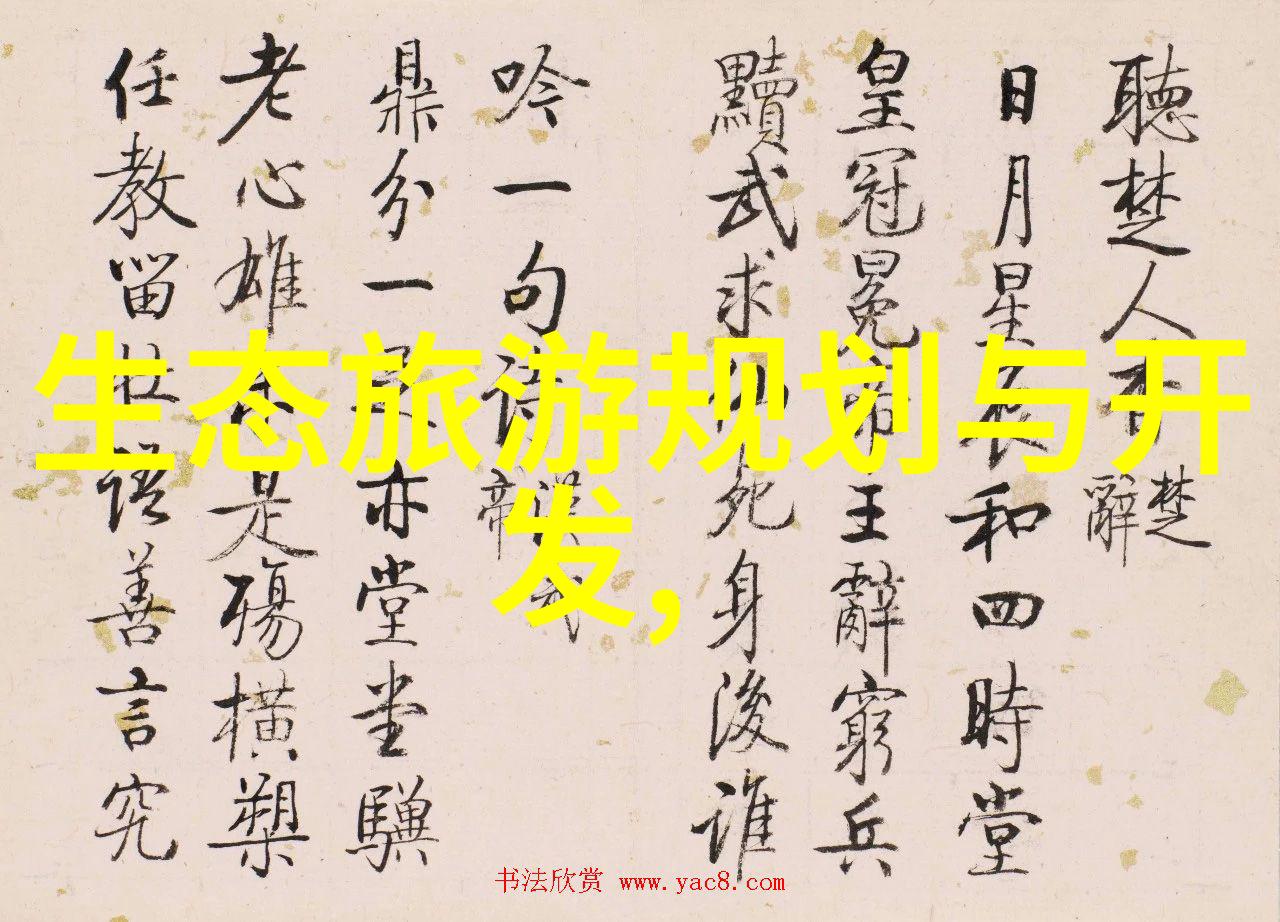 生态旅游规划与开
发,
聽楚人 楚辭
日月星辰和四時堂
皇冠冕帝王辭窮兵
黷武求仙死身後誰
吟一句詩 漢武帝
鼎分一足亦堂堂驥
老心雄未是殤橫槊
任教留壯語善言究
书法欣赏 www.yac8.com